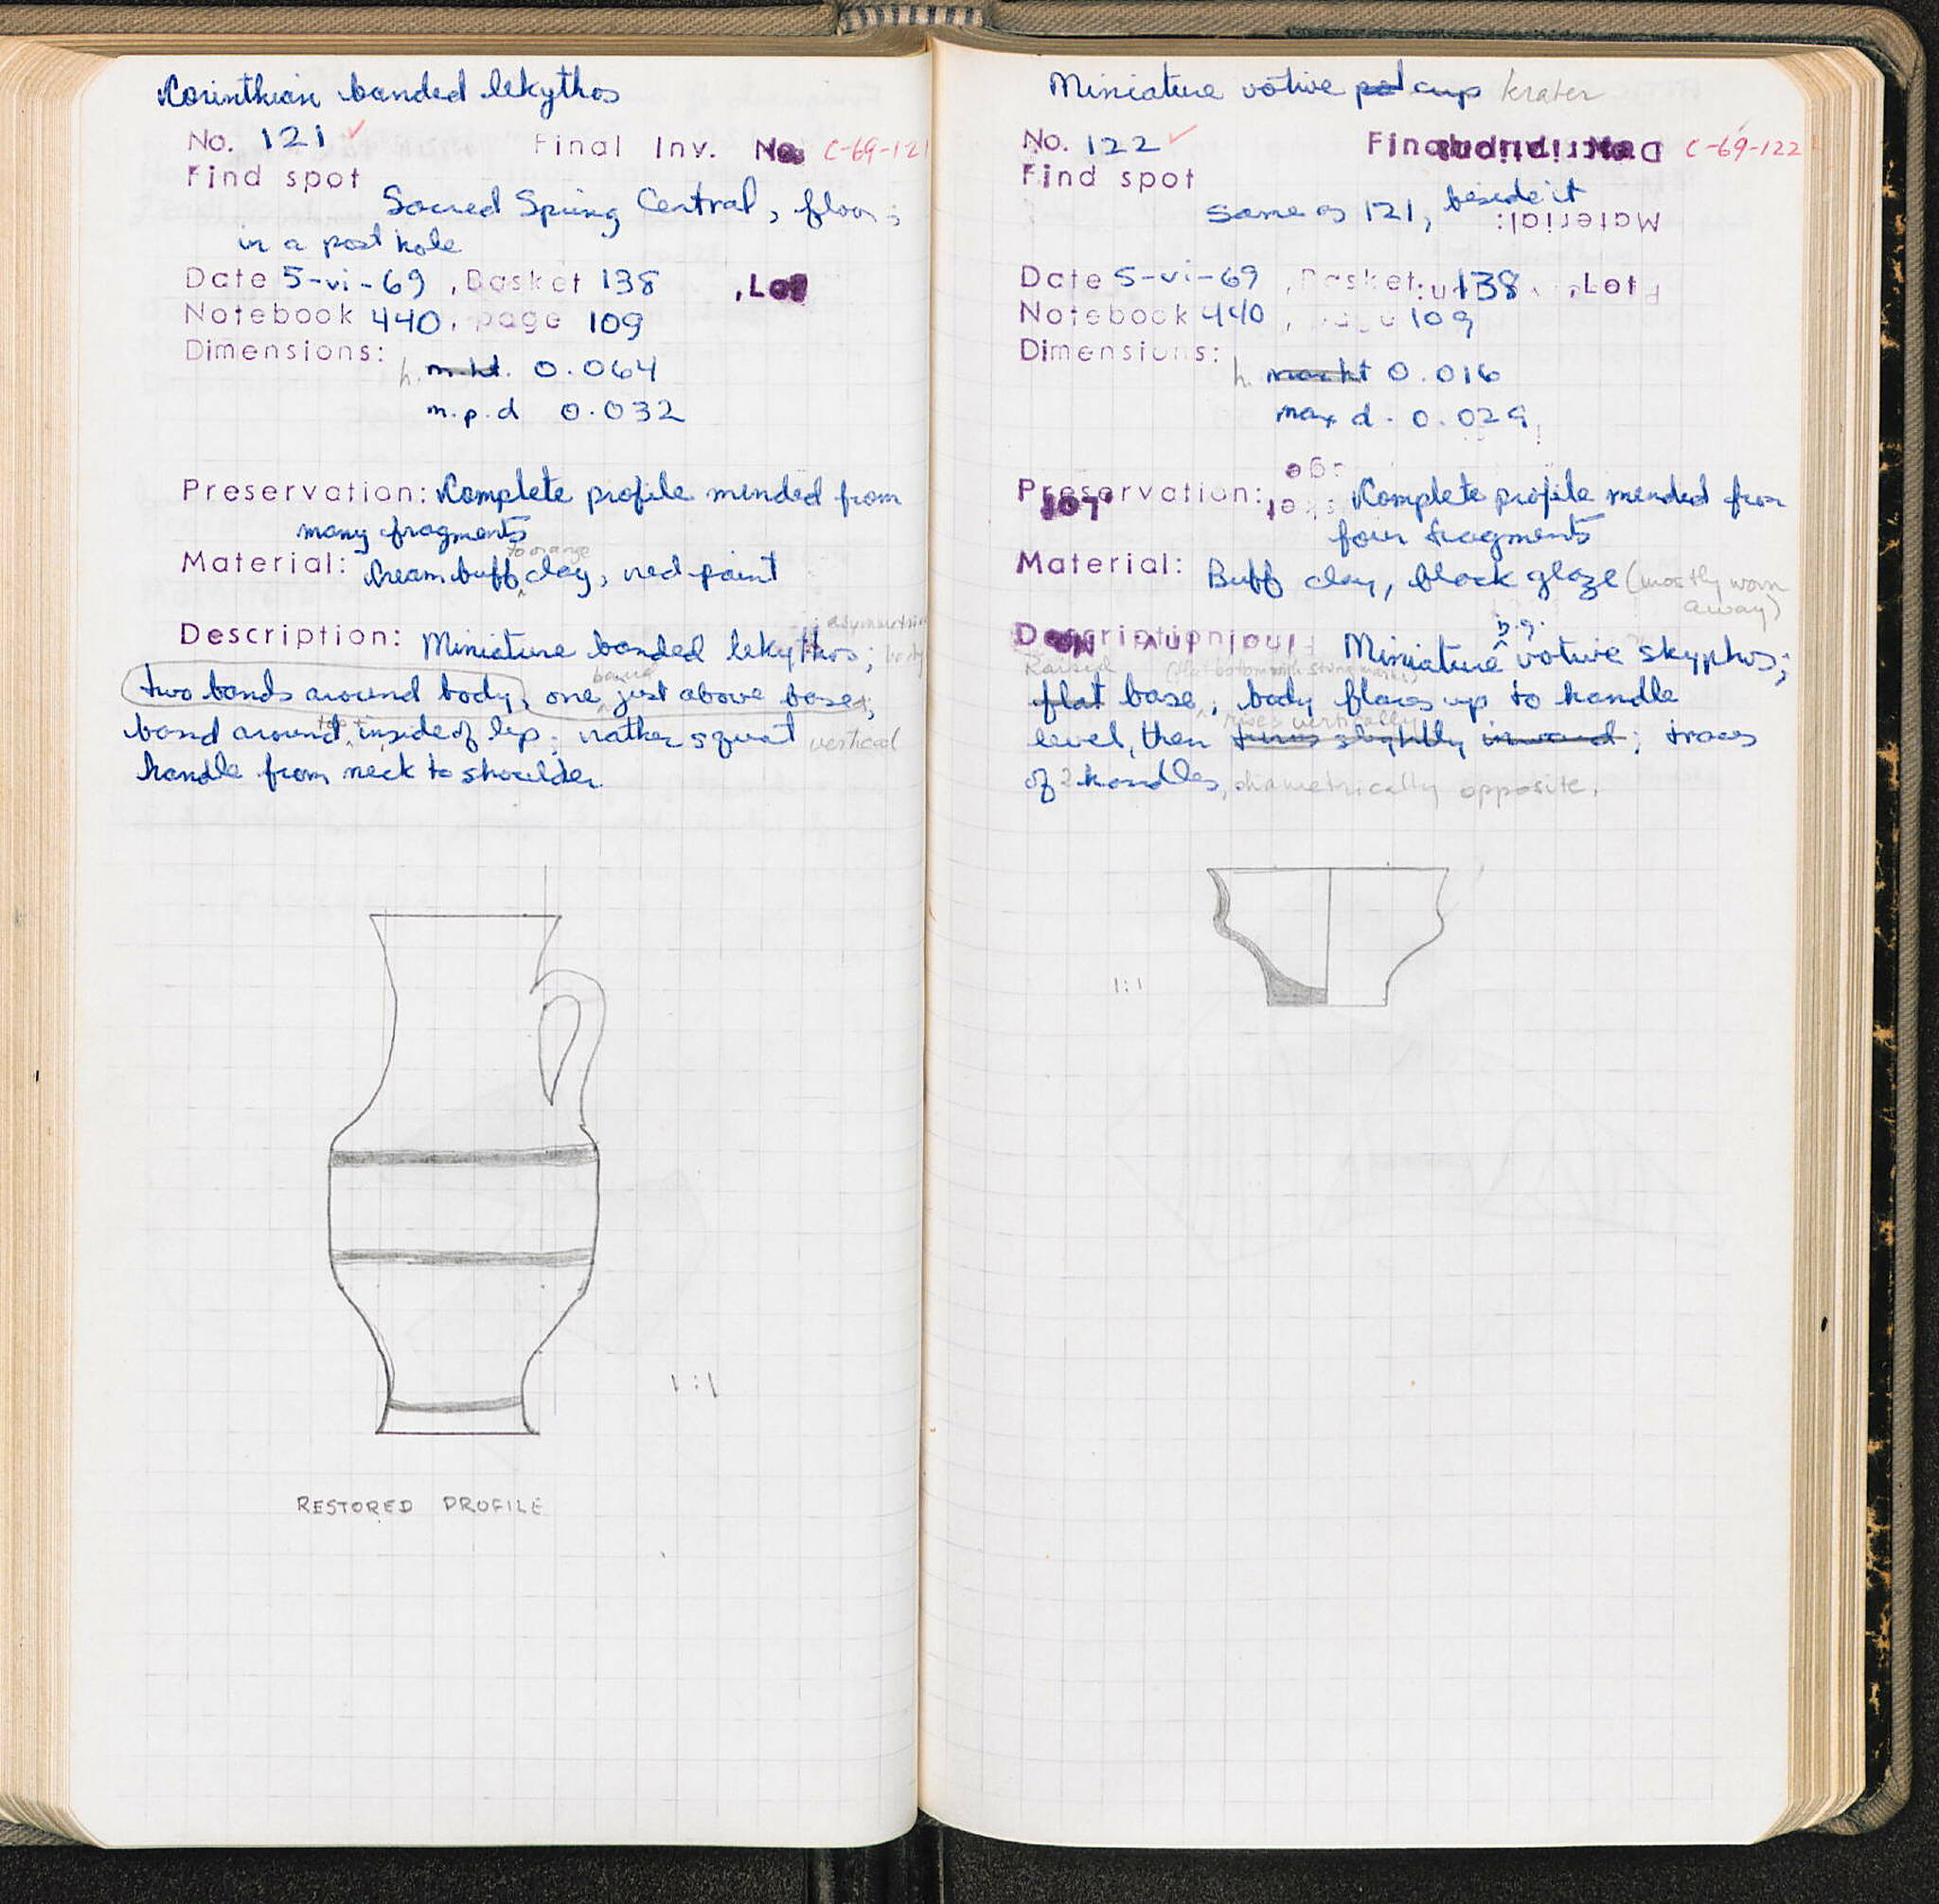 Corinthian banded lekythos
No. 121 ✓ Final Inv. No. C-69-121
Find spot
Sacred Spring Central, floor;
in a post hole
Date 5-vi-69 , Basket 138 , Lot
Notebook 440, page 109
Dimensions:
h. m. ht. 0.064
m.p.d 0.032
Preservation: Complete profile mended from
many fragments
to orange
Material: Cream buff clay, red paint
asymmetrical
Description: Miniature banded lekythos; body
band
two bands around body, one just above base;
band around top + inside of lip; rather squat vertical
handle from neck to shoulder.
1:1
RESTORED PROFILE
Miniature votive pot cup krater
No. 122 ✓ Final Inv. No. C-69-122
Find spot
same as 121, beside it
Material:
Date 5-vi-69 , Basket 138 , Lot
Notebook 440, page 109
Dimensions:
h. max ht 0.016
max d. 0.029
Preservation: Complete profile mended from
Lot
four fragments
Material: Buff clay, black glaze (mostly worn
away)
b.g.
Description: Miniature votive skyphos;
Raised (flat bottom with string marks)
flat base; body flares up to handle
rises vertically
level, then turns slightly inward; traces
of 2 handles, diametrically opposite.
1:1